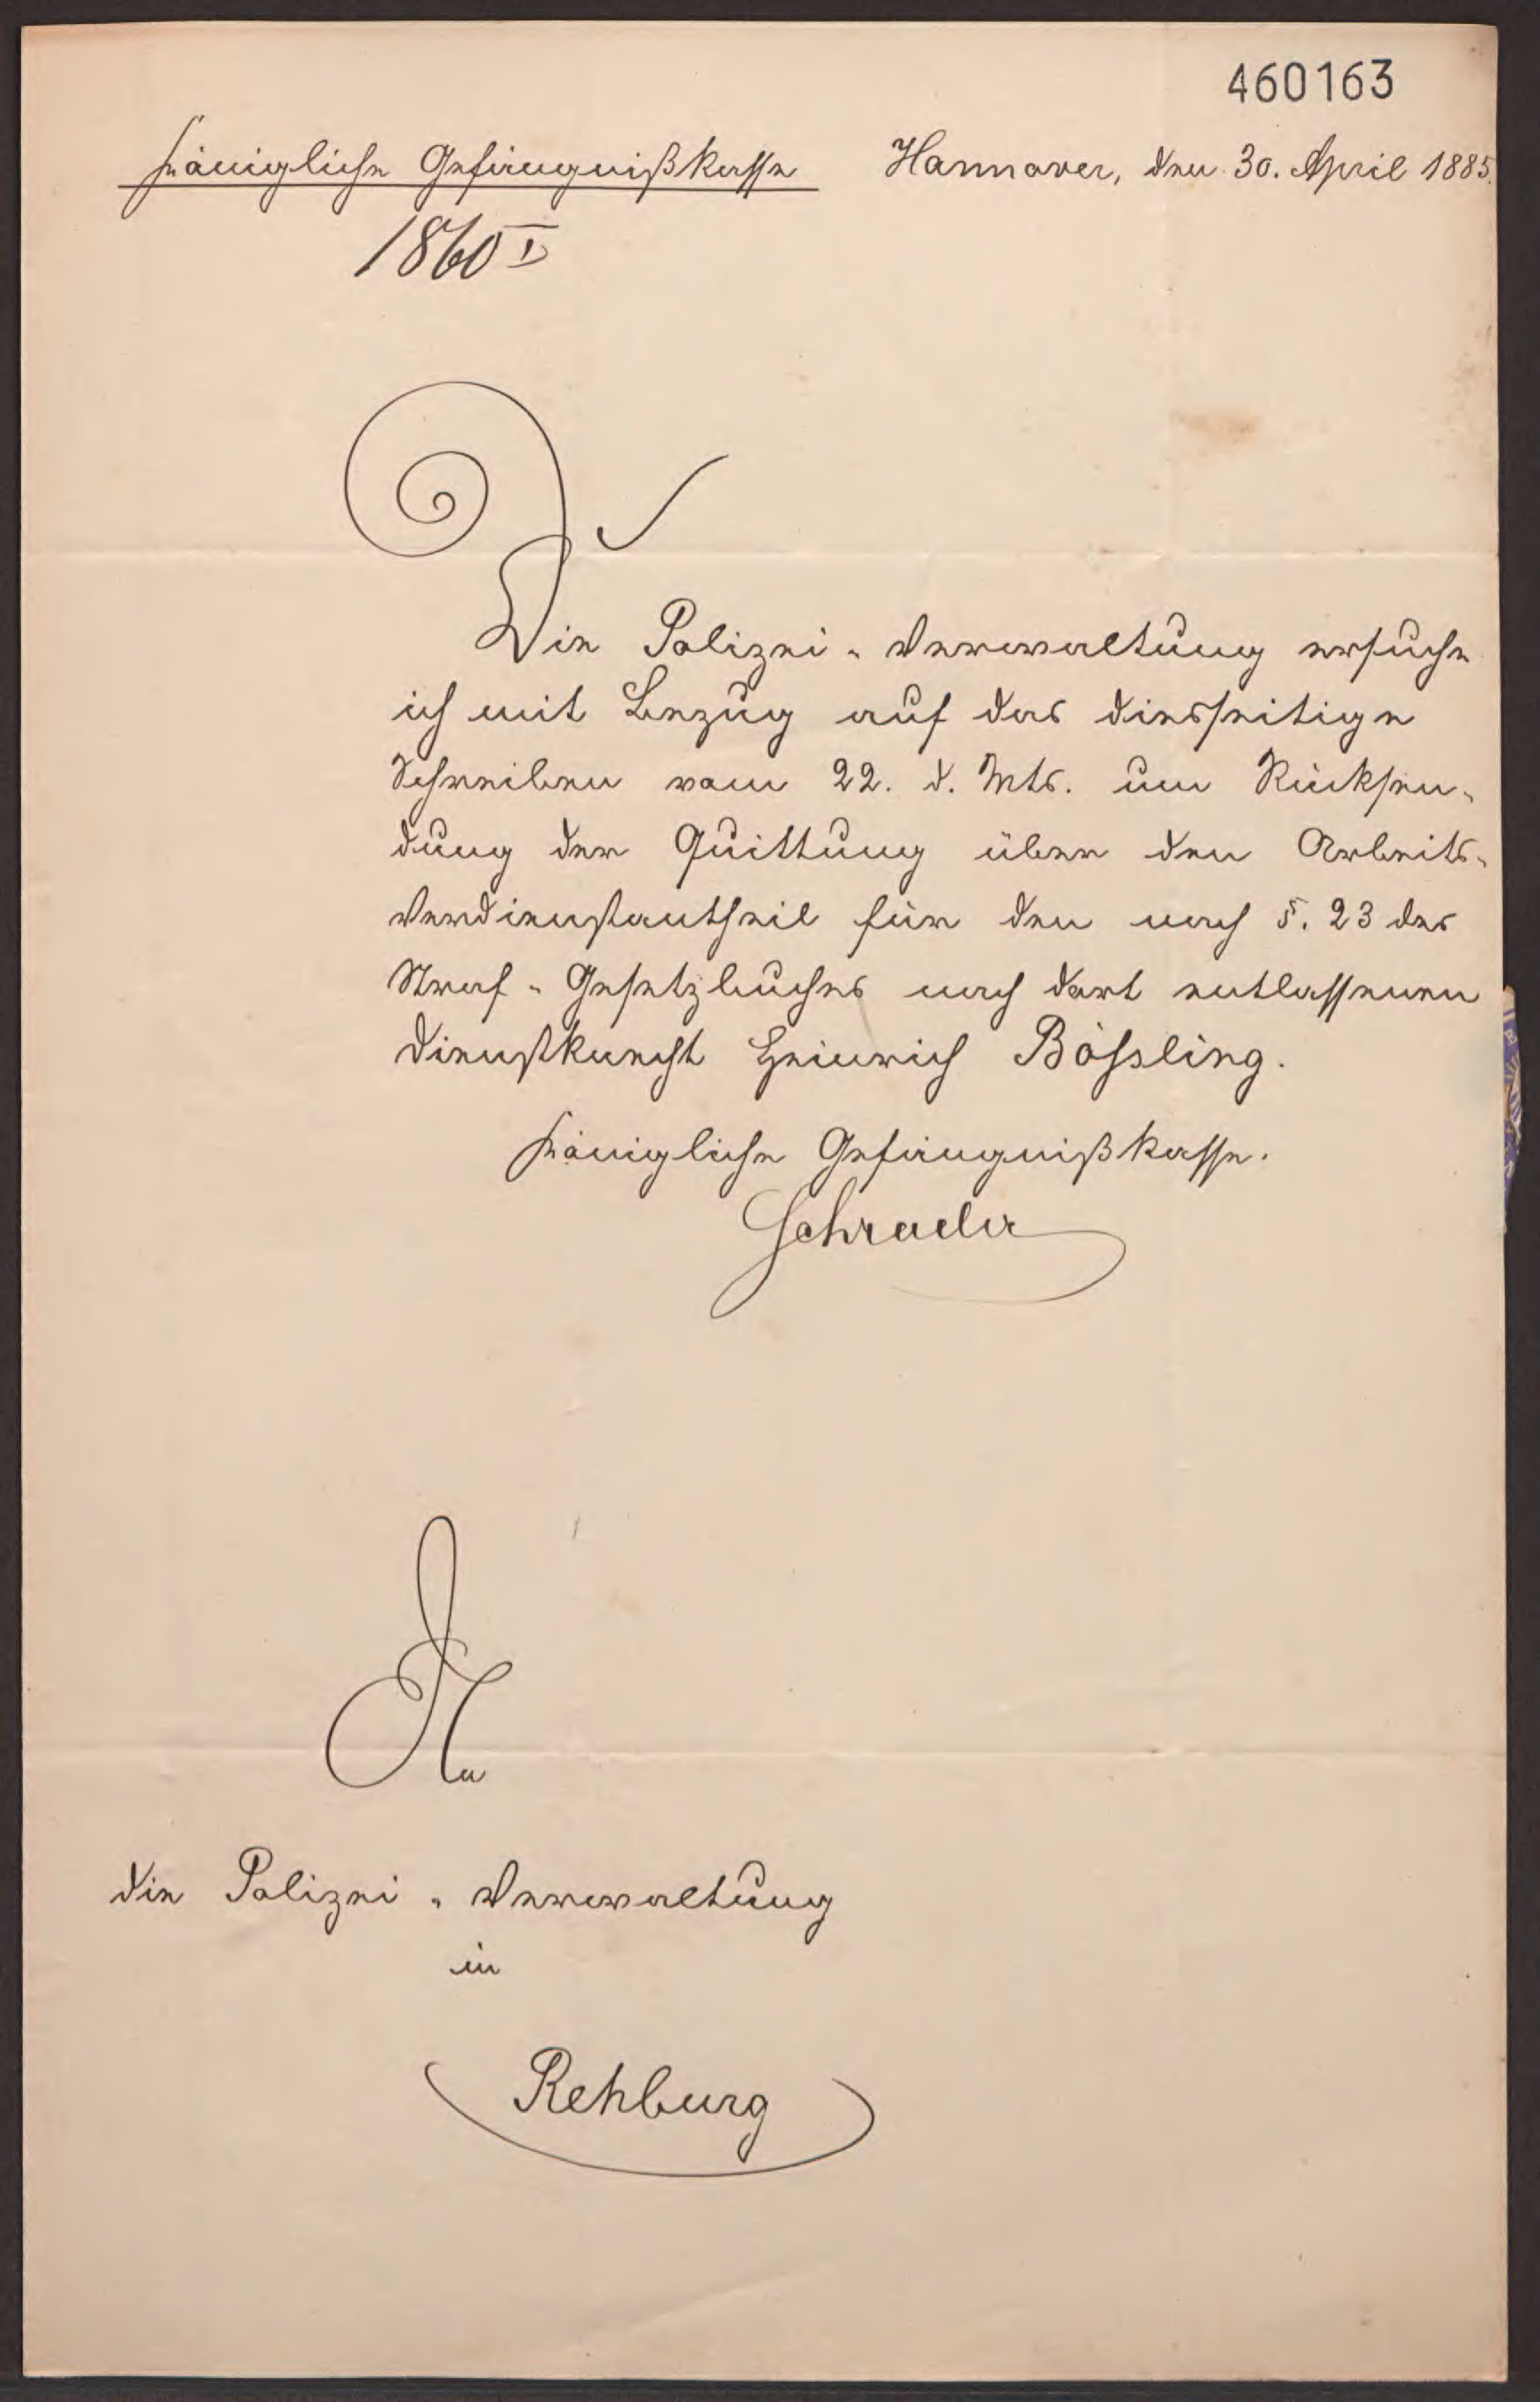 460163
Königliche Gefängnißkasse Hannover, den 30. April 1885.
1860 I
Die Polizei-Verwaltung ersuche
ich mit Bezug auf das diesseitige
Schreiben vom 22. d. Mts. um Rücksen-
dung der Quittung über den Arbeits-
verdienstantheil für den nach §. 23 des
Straf-Gesetzbuches nach dort entlassenen
Dienstknecht Heinrich Bößling.
Königliche Gefängnißkasse.
Schrader
An
die Polizei-Verwaltung
in
Rehburg